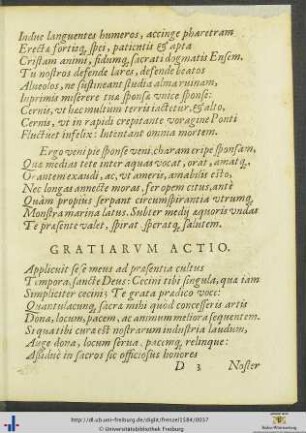 Indue languentes humeros, accinge pharetram
Erecta fortiq; spei, patientis & apta
Cristam animi, fidumq; sacrati dogmatis Ensem.
Tu nostros defende lares, defende beatos
Alueolos, ne sustineant studia alma ruinam,
Inprimis miserere tua sponsa vnice sponse:
Cernis, vt hac multum terris iactetur, & alto,
Cernis, vt in rapidi crepitante voragine Ponti
Fluctuet infelix: Intentant omnia mortem.
Ergo veni pie sponse veni, charam eripe sponsam,
Qua medias tete inter aquas vocat, orat, amatq;,
Orantem exaudi, ac, vt ameris, amabilis esto,
Nec longas annecte moras, fer opem citus, ante
Quàm propius serpant circumspirantia vtrumq;
Monstra marina latus. Subter medij aquoris vndas
Te præsente valet, spirat, speratq; salutem.
GRATIARVM ACTIO.
Applicuit se se meus ad præsentia cultus
Tempora, sancte Deus: Cecini tibi singula, qua iam
Simpliciter cecini; Te grata prædico voce:
Quantulacunq; sacra mihi quod concesseris artis
Dona, locum, pacem, ac animum meliora sequentem.
Si qua tibi cura est nostrarum industria laudum,
Auge dona, locum serua, pacemq; relinque:
Assiduè in sacros sic officiosus honores
D 3 Noster
http://dl.ub.uni-freiburg.de/diglit/frenzel1584/0037
© Universitätsbibliothek Freiburg
Baden-Württemberg